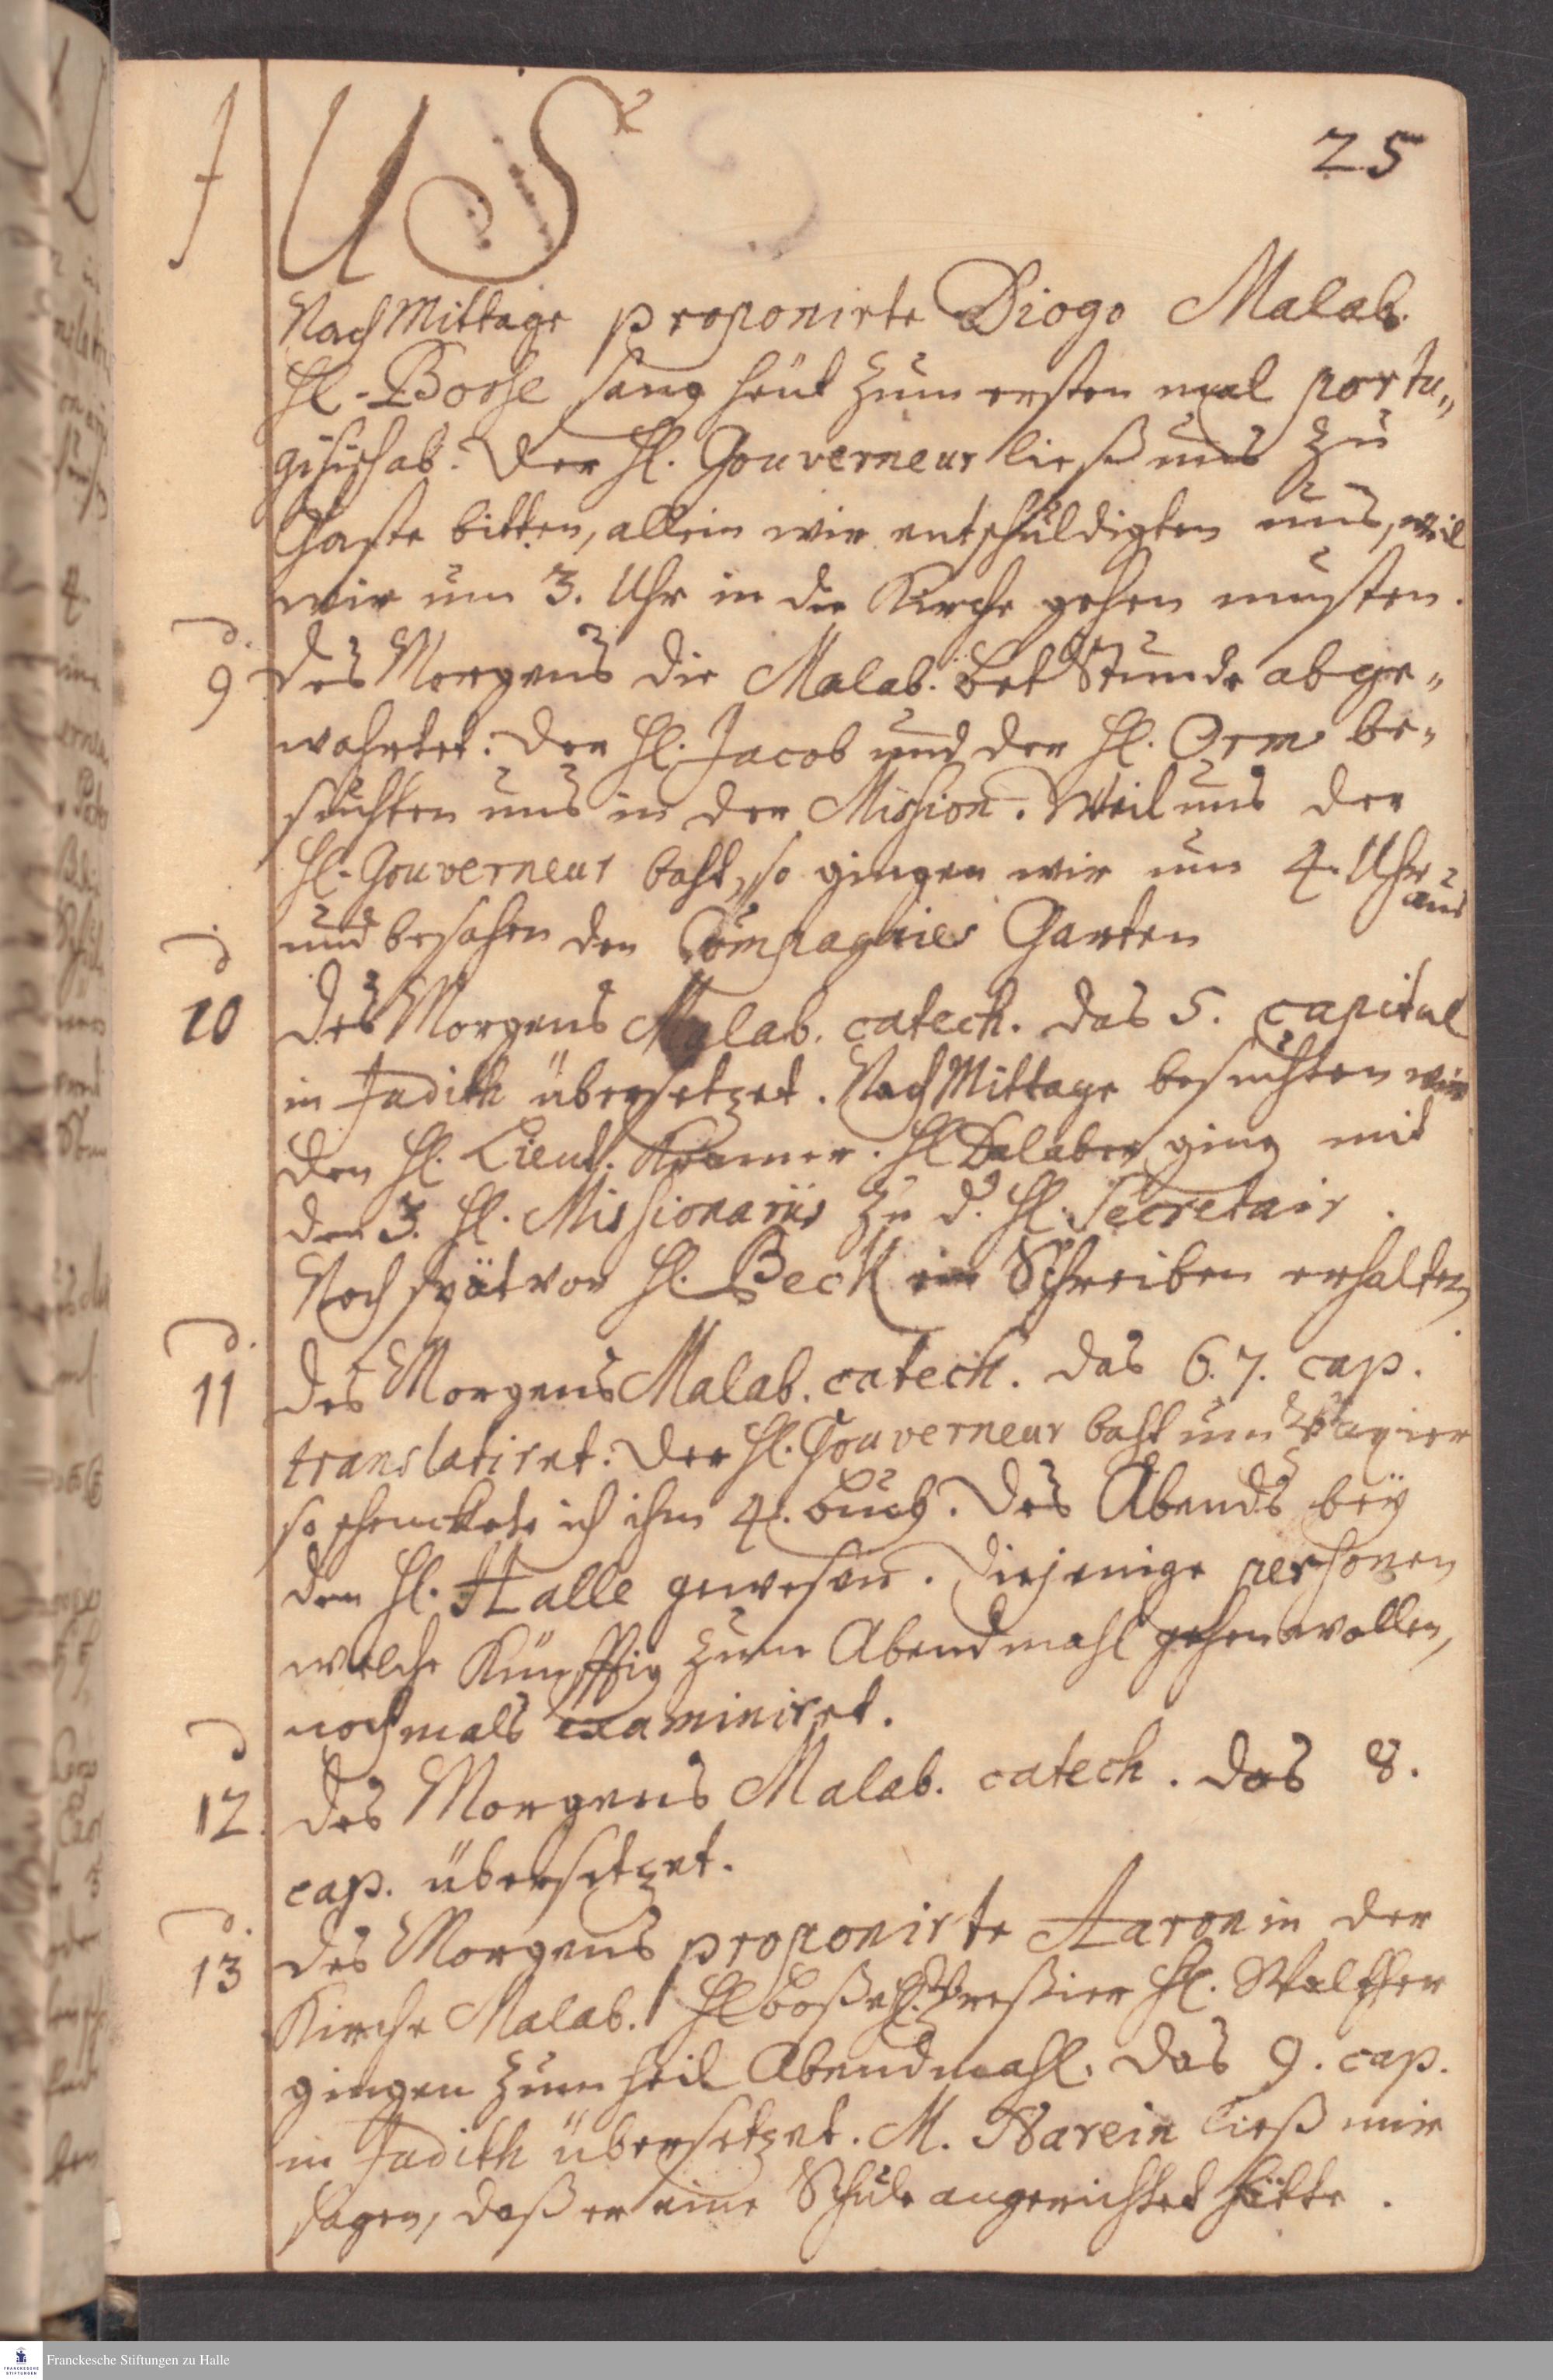 25
Nach Mittage proponirte Diogo Malab.
Hl. Bosse fang heut zum ersten mal portu„
gisisch ab. Der Hl. Gouverneur ließ uns zu
Gaste bitten, allein wir entschuldigten uns, weil
wir um 3. Uhr in die Kirche gehen musten.
d.
9 des Morgens die Malab. Bet Stunde abge„
wahrtet. Der Hl. Jacob und der Hl. Orm be„
suchten uns in der Mission. Weil uns der
Hl. Gouverneur baht, so gingen wir um 4. Uhr aus
und besahen den Compagnies Garten
d
10 des Morgens Malab. catech. das 5. capitul
in Judith übersetzet. Nach Mittage besuchten wir
den Hl. Lieut. Kramer. Hl Dalaber ging mit
den 3. Hl. Missionariis zu d. Hl. Secretair.
Noch spät von Hl. Beck ein Schreiben erhalten
d.
11 des Morgens Malab. catech. das 6. 7. cap.
translatiret. Der Hl. Gouverneur baht um Papier
so schenckete ich ihm 4. buch. Des Abends bey
dem Hl. Halle gewesen. Diejenige personen
welche Künfftig zum Abendmahl gehen wollen,
nochmals examiniret.
d
12 des Morgens Malab. catech. das 8.
cap. übersetzet.
d.
13 des Morgens proponirte Aaron in der
Kirche Malab. Hl Boße Hl. Preßier Hl. Walther
gingen zum heil Abendmahl. Das 9. cap.
in Judith übersetzet. M. ließ mir
sagen, daß er eine Schule angerichtet hätte.
Franckesche Stiftungen zu Halle
FRANCKESCHE STIFTUNGEN